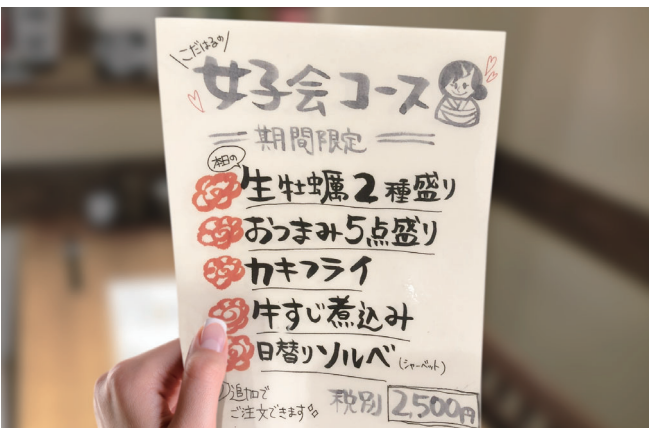 こだはるの
女子会コース
期間限定
本日の
生牡蠣2種盛り
おつまみ5点盛り
カキフライ
牛すじ煮込み
日替りソルベ(シャーベット)
追加で
ご注文できます
税別 2,500円